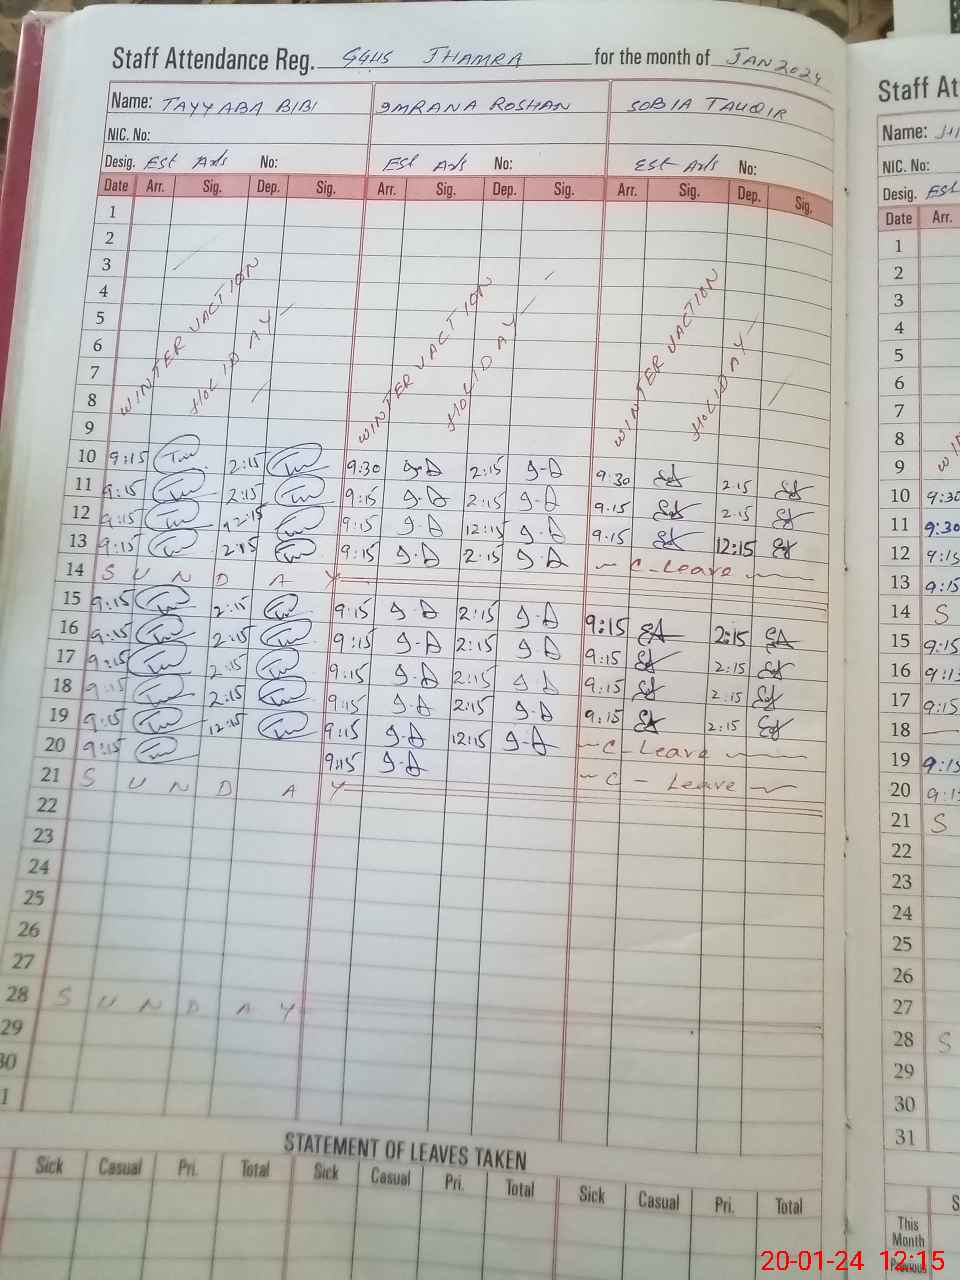 Staff Attendance Reg. GGHS JHAMRA for the month of JAN 2024
Name: TAYYABA BIBI IMRANA ROSHAN SOBIA TAUQIR
NIC. No:
Desig. Est Arts No: Est Arts No: Est Arts No:
Date Arr. Sig. Dep. Sig. Arr. Sig. Dep. Sig. Arr. Sig. Dep. Sig.
1
2
3
4
5
6
7
8
9
WINTER VACTION HOLIDAY WINTER VACTION HOLIDAY WINTER VACTION HOLIDAY
10 9:15 2:15 9:30 2:15 9:30 2:15
11 9:15 2:15 9:15 2:15 9:15 2:15
12 9:15 12:15 9:15 12:15 9:15 12:15
13 9:15 2:15 9:15 2:15 C-Leave
14 SUNDAY
15 9:15 2:15 9:15 2:15 9:15 2:15
16 9:15 2:15 9:15 2:15 9:15 2:15
17 9:15 2:15 9:15 2:15 9:15 2:15
18 9:15 2:15 9:15 2:15 9:15 2:15
19 9:15 12:15 9:15 12:15 C-Leave
20 9:15 9:15 C - Leave
21 SUNDAY
22
23
24
25
26
27
28 SUNDAY
29
30
1
STATEMENT OF LEAVES TAKEN
Sick Casual Pri. Total Sick Casual Pri. Total Sick Casual Pri. Total
Staff At
Name:
NIC. No:
Desig. Est
Date Arr.
1
2
3
4
5
6
7
8
9
10 9:30
11 9:30
12 9:15
13 9:15
14 S
15 9:15
16 9:15
17 9:15
18
19 9:15
20 9:15
21 S
22
23
24
25
26
27
28 S
29
30
31
This
Month
Previous
20-01-24 12:15